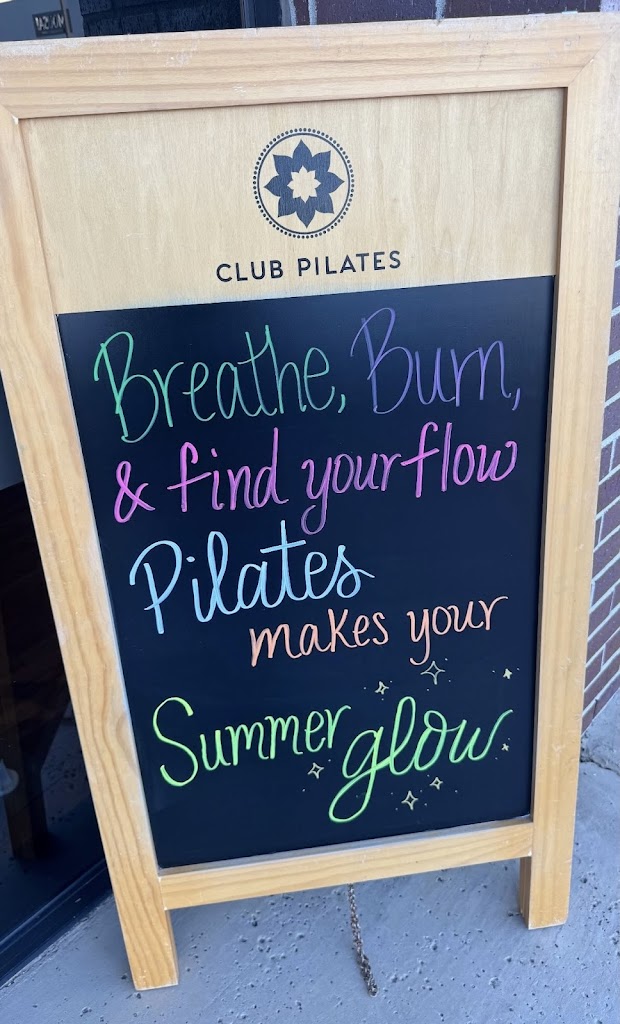 CLUB PILATES
Breathe, Burn,
& find your flow
Pilates
makes your
Summer glow